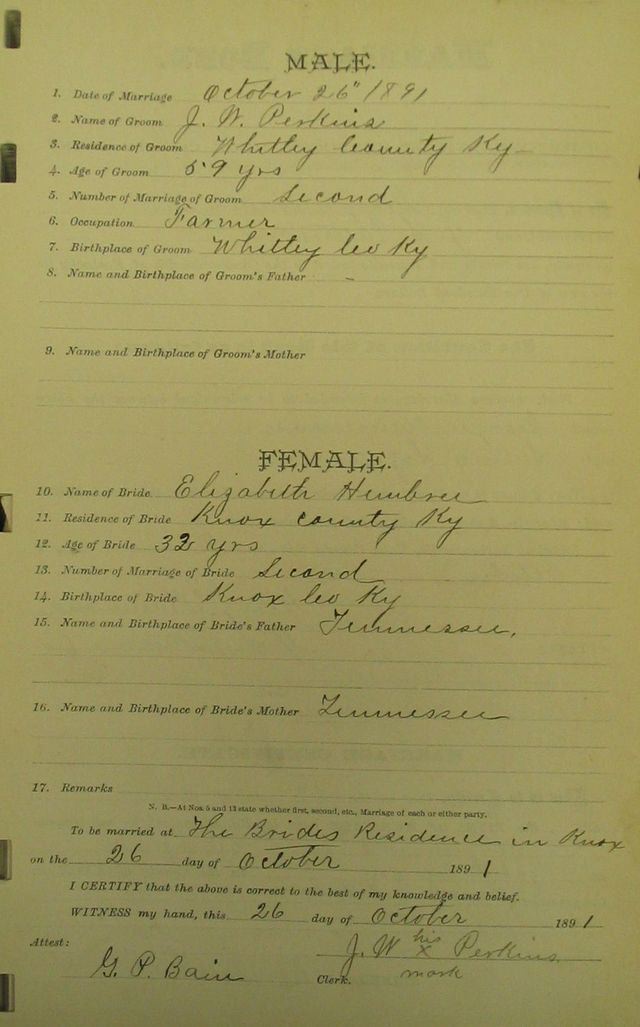 MALE.
1. Date of Marriage October 26" 1891
2. Name of Groom J. W. Perkins
3. Residence of Groom Whitley County Ky
4. Age of Groom 59 yrs
5. Number of Marriage of Groom Second
6. Occupation Farmer
7. Birthplace of Groom Whitley Co Ky
8. Name and Birthplace of Groom's Father -
9. Name and Birthplace of Groom's Mother
FEMALE.
10. Name of Bride Elizabeth Hembree
11. Residence of Bride Knox County Ky
12. Age of Bride 32 yrs
13. Number of Marriage of Bride Second
14. Birthplace of Bride Knox Co Ky
15. Name and Birthplace of Bride's Father Tennessee.
16. Name and Birthplace of Bride's Mother Tennessee
17. Remarks
N. B.—At Nos. 5 and 13 state whether first, second, etc., Marriage of each or either party.
To be married at The Brides Residence in Knox
on the 26 day of October 1891
I CERTIFY that the above is correct to the best of my knowledge and belief.
WITNESS my hand, this 26 day of October 1891
Attest:
J. W his x mark Perkins
G. P. Bain Clerk.